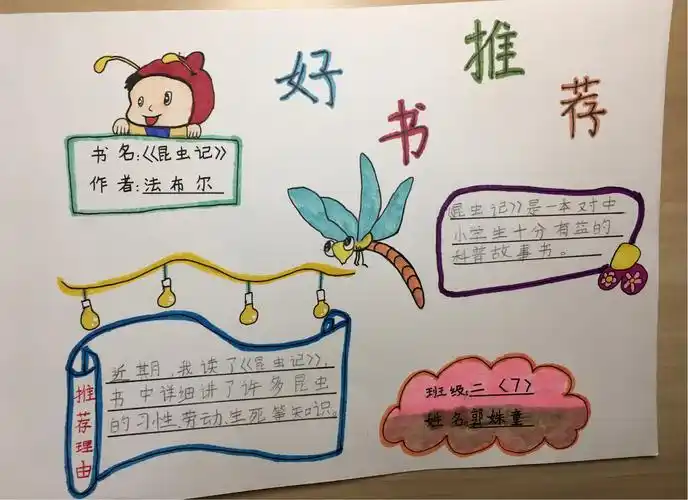 好书推荐
书名:《昆虫记》
作者:法布尔
昆虫记》是一本对中
小学生十分有益的
科普故事书。
推荐理由
近期,我读了《昆虫记》,
书中详细讲了许多昆虫
的习性、劳动、生死等知识。
班级:二〈7〉
姓名:郭姝童